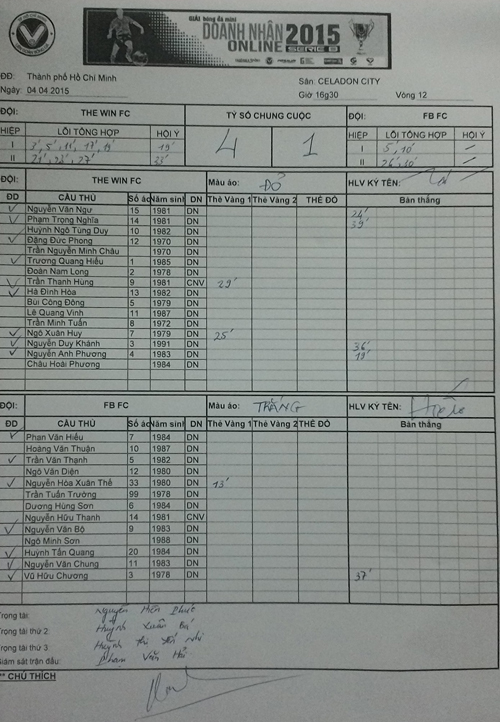 GIẢI bóng đá mini
DOANH NHÂN 2015
ONLINE SERIE B
ĐĐ: Thành phố Hồ Chí Minh Sân: CELADON CITY
Ngày: 04.04.2015 Giờ 16g30 Vòng 12
ĐỘI: THE WIN FC TỶ SỐ CHUNG CUỘC ĐỘI: FB FC
HIỆP LỖI TỔNG HỢP HỘI Ý 4 1 HIỆP LỖI TỔNG HỢP HỘI Ý
I 3', 5', 11', 17', 19' 19' I 5', 10' –
II 21', 22', 27' 23' II 26', 30' –
ĐỘI: THE WIN FC Màu áo: ĐỎ HLV KÝ TÊN:
ĐD CẦU THỦ Số áo Năm sinh DN Thẻ Vàng 1 Thẻ Vàng 2 THẺ ĐỎ Bàn thắng
✓ Nguyễn Văn Ngư 15 1981 DN 24'
✓ Phạm Trọng Nghĩa 14 1981 DN 39'
Huỳnh Ngô Tùng Duy 10 1982 DN
✓ Đặng Đức Phong 12 1970 DN
Trần Nguyễn Minh Châu 1970 DN
✓ Trương Quang Hiếu 1 1985 DN
Đoàn Nam Long 2 1978 DN
✓ Trần Thanh Hùng 9 1981 CNV 29'
✓ Hà Đình Hòa 13 1982 DN
Bùi Công Đông 5 1979 DN
Lê Quang Vinh 11 1987 DN
Trần Minh Tuấn 8 1972 DN
✓ Ngô Xuân Huy 7 1979 DN 25'
✓ Nguyễn Duy Khánh 3 1991 DN 36'
✓ Nguyễn Anh Phương 4 1983 DN 19'
Châu Hoài Phương 1984 DN
ĐỘI: FB FC Màu áo: TRẮNG HLV KÝ TÊN:
ĐD CẦU THỦ Số áo Năm sinh DN Thẻ Vàng 1 Thẻ Vàng 2 THẺ ĐỎ Bàn thắng
✓ Phan Văn Hiếu 7 1984 DN
Hoàng Văn Thuận 10 1987 DN
✓ Trần Văn Thạnh 5 1982 DN
Ngô Văn Diện 12 1980 DN
✓ Nguyễn Hòa Xuân Thế 33 1980 DN 13'
Trần Tuấn Trường 99 1978 DN
Dương Hùng Sơn 6 1984 DN
Nguyễn Hữu Thanh 14 1981 CNV
✓ Nguyễn Văn Bộ 9 1983 DN
Ngô Minh Sơn 1988 DN
✓ Huỳnh Tấn Quang 20 1984 DN
✓ Nguyễn Văn Chung 11 1983 DN
✓ Vũ Hữu Chương 3 1978 DN 37'
Trọng tài: Nguyễn Hiền
Trọng tài thứ 2: Huỳnh Xuân
Trọng tài thứ 3: Huỳnh
Giám sát trận đấu: Phạm Văn
** CHÚ THÍCH